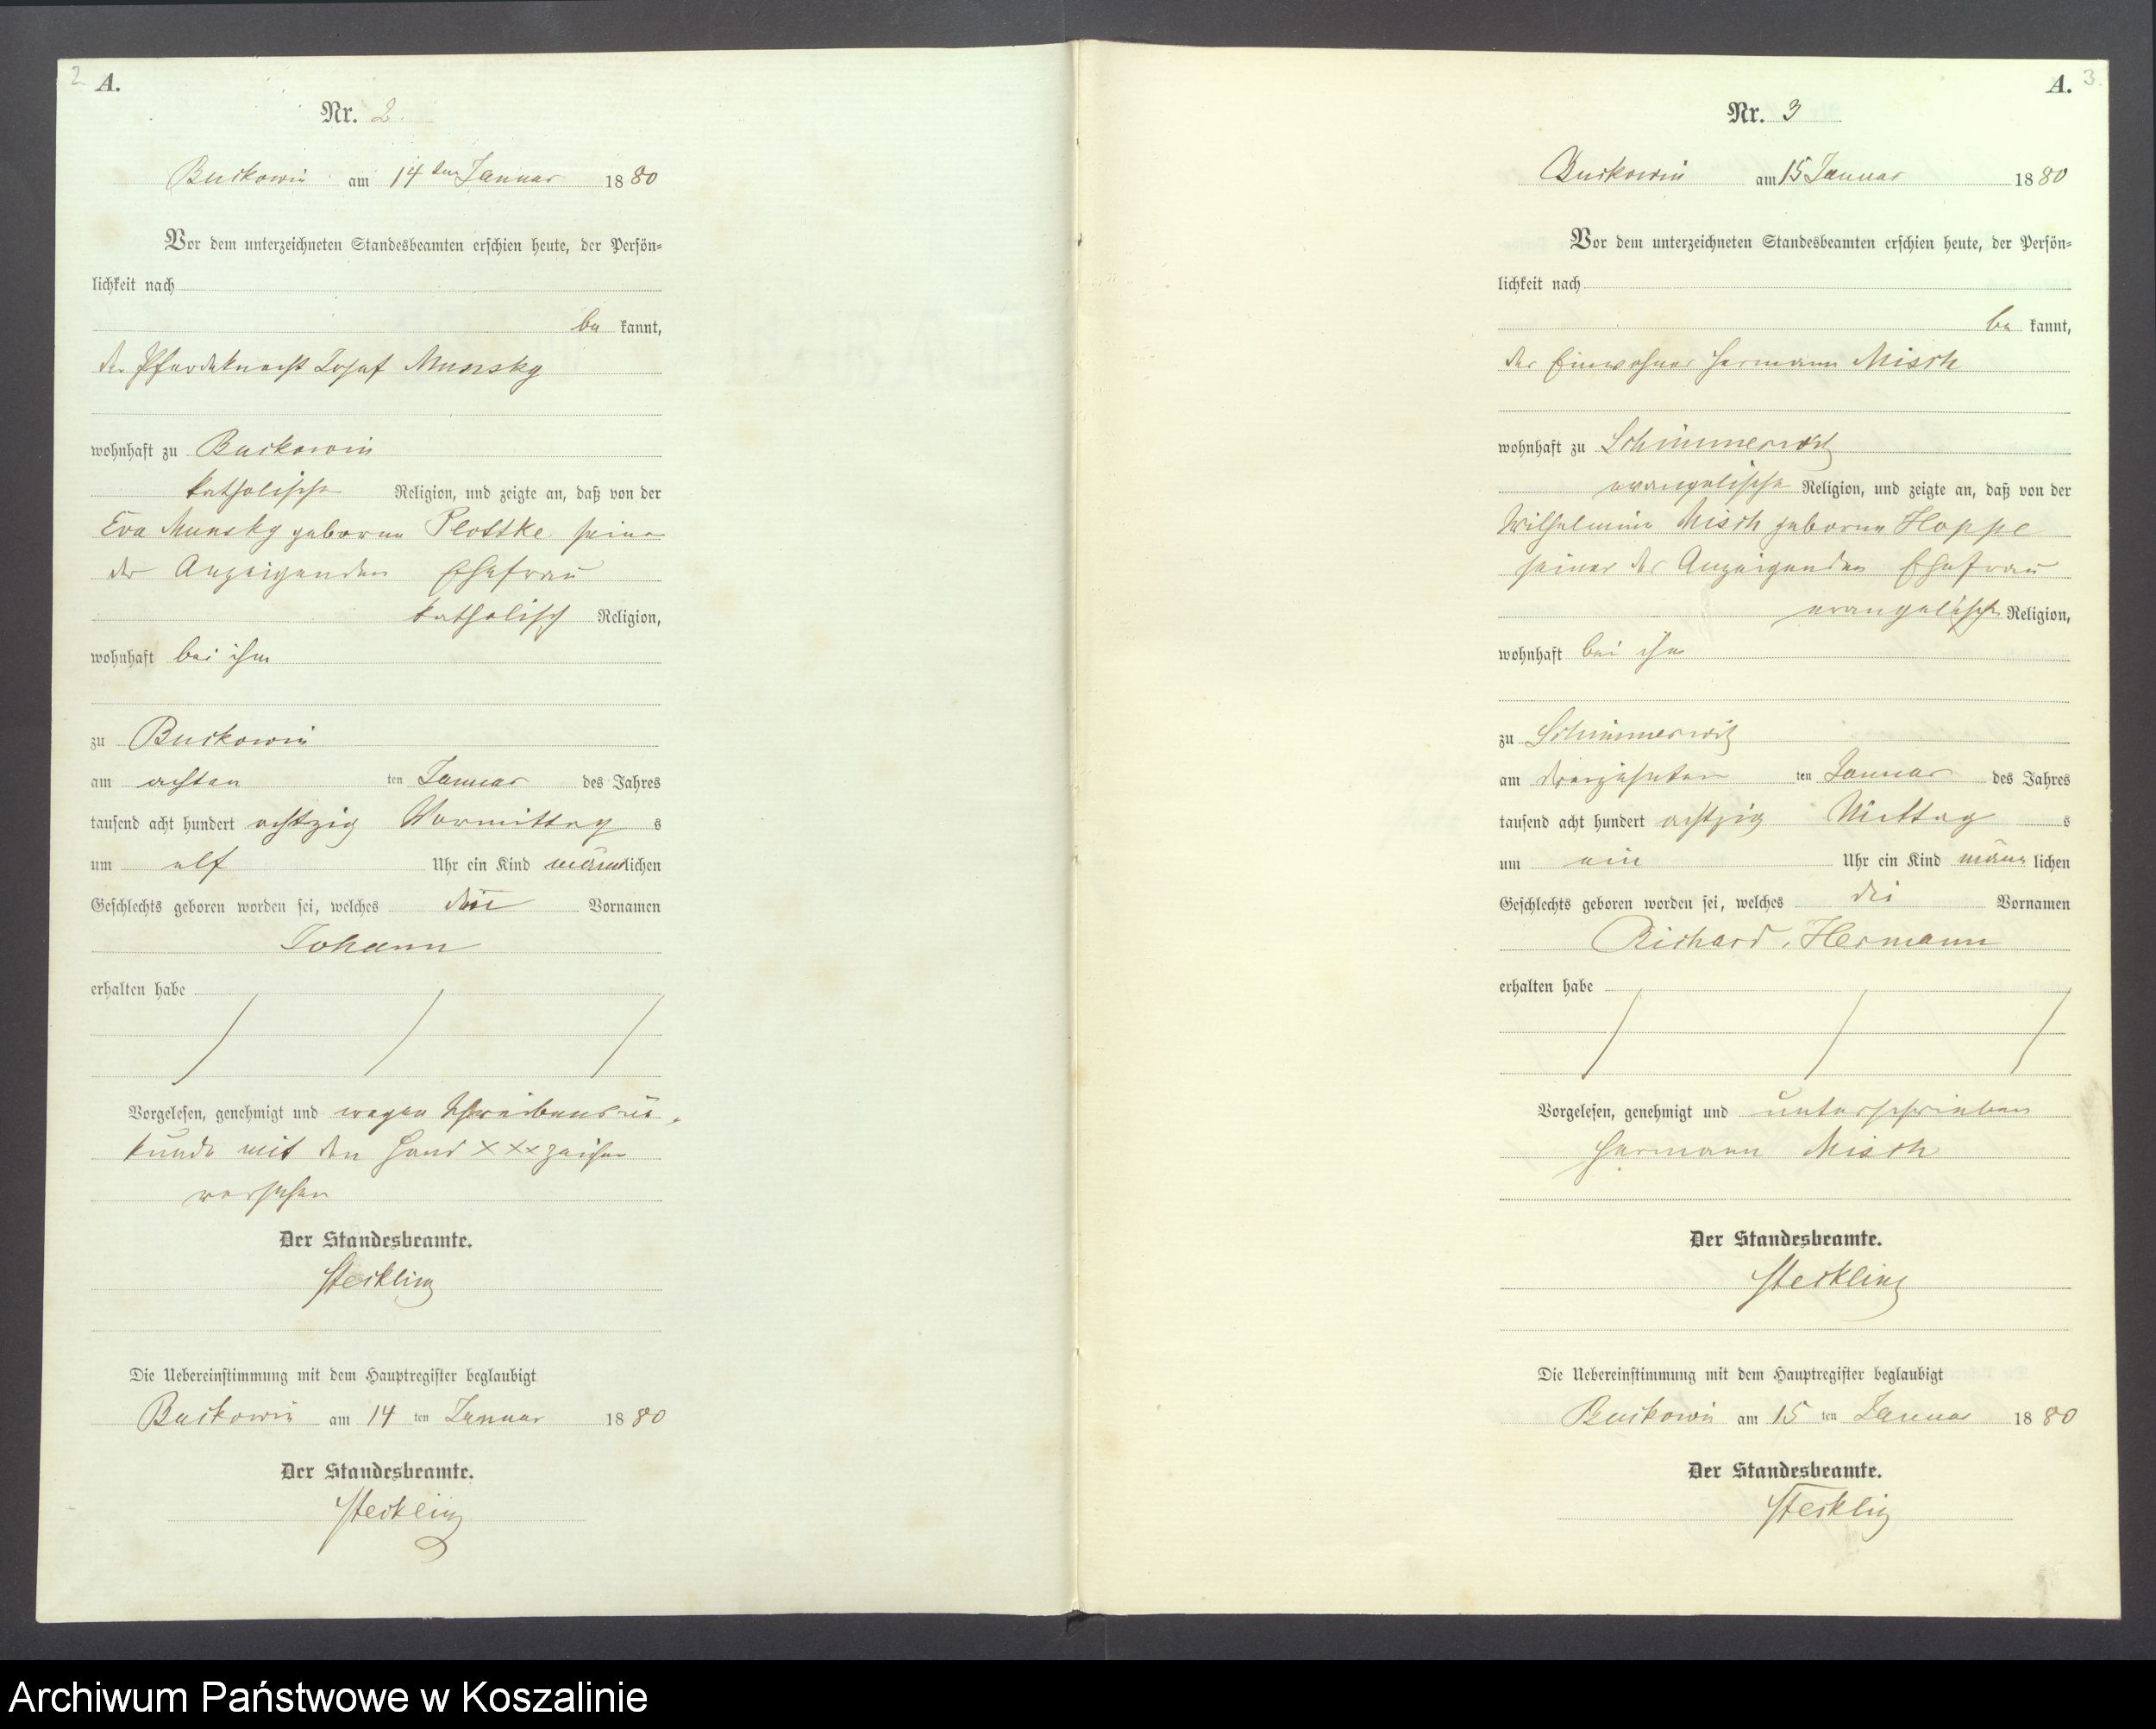 2
A.
Nr. 2.
Buckowin am 14ten Januar 1880
Vor dem unterzeichneten Standesbeamten erschien heute, der Persön-
lichkeit nach
be kannt,
der Pferdeknecht Josef Munsky
wohnhaft zu Buckowin
katholische Religion, und zeigte an, daß von der
Eva Munsky geborne Plottke seine
der Anzeigenden Ehefrau
katholisch Religion,
wohnhaft bei ihm
zu Buckowin
am achten ten Januar des Jahres
tausend acht hundert achtzig Vormittag s
um elf Uhr ein Kind männlichen
Geschlechts geboren worden sei, welches Vornamen
Johann
erhalten habe
Vorgelesen, genehmigt und wegen Schreibensun-
kunde mit den Hand xxxzeichen
versehen
Der Standesbeamte.
Steckling
Die Uebereinstimmung mit dem Hauptregister beglaubigt
Buckowin am 14 ten Januar 1880
Der Standesbeamte.
Steckling
A. 3
Nr. 3
Buckowin am 15 Januar 1880
Vor dem unterzeichneten Standesbeamten erschien heute, der Persön-
lichkeit nach
be kannt,
der Einwohner Hermann Misch
wohnhaft zu Schimmerwitz
evangelische Religion, und zeigte an, daß von der
Wilhelmine Misch geborne Hoppe
seiner der Anzeigenden Ehefrau
evangelische Religion,
wohnhaft bei ihm
zu Schimmerwitz
am dreizehnten ten Januar des Jahres
tausend acht hundert achtzig Mittag s
um ein Uhr ein Kind männ lichen
Geschlechts geboren worden sei, welches die Vornamen
Richard, Hermann
erhalten habe
Vorgelesen, genehmigt und unterschrieben
Hermann Misch
Der Standesbeamte.
Steckling
Die Uebereinstimmung mit dem Hauptregister beglaubigt
Buckowin am 15 ten Januar 1880
Der Standesbeamte.
Steckling
Archiwum Państwowe w Koszalinie